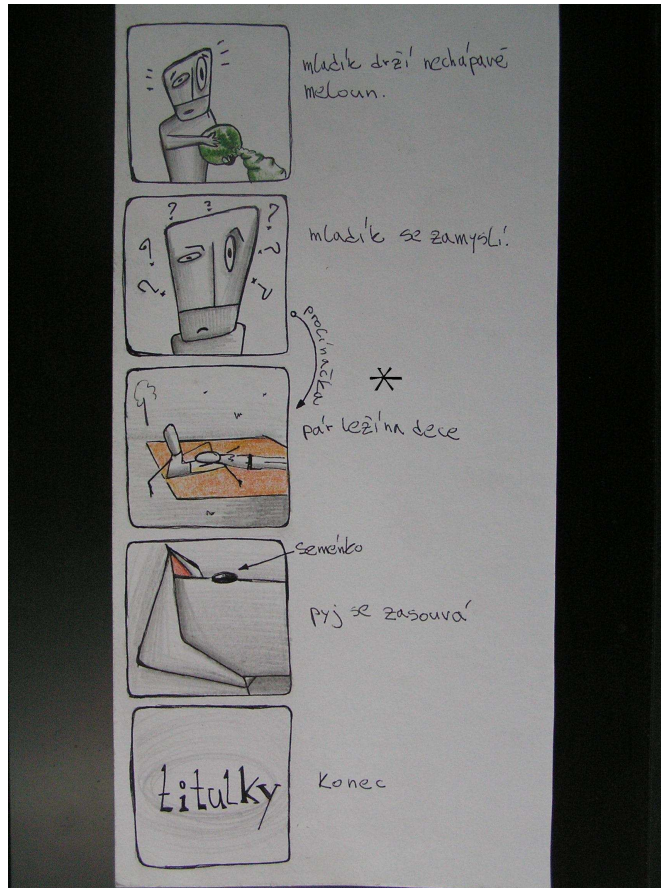 mladík drží nechápavě
meloun.
? ? ? ? ? ? ?
mladík se zamyslí.
prolínačka
*
pár leží na dece
seménko
pyj se zasouvá
titulky
Konec